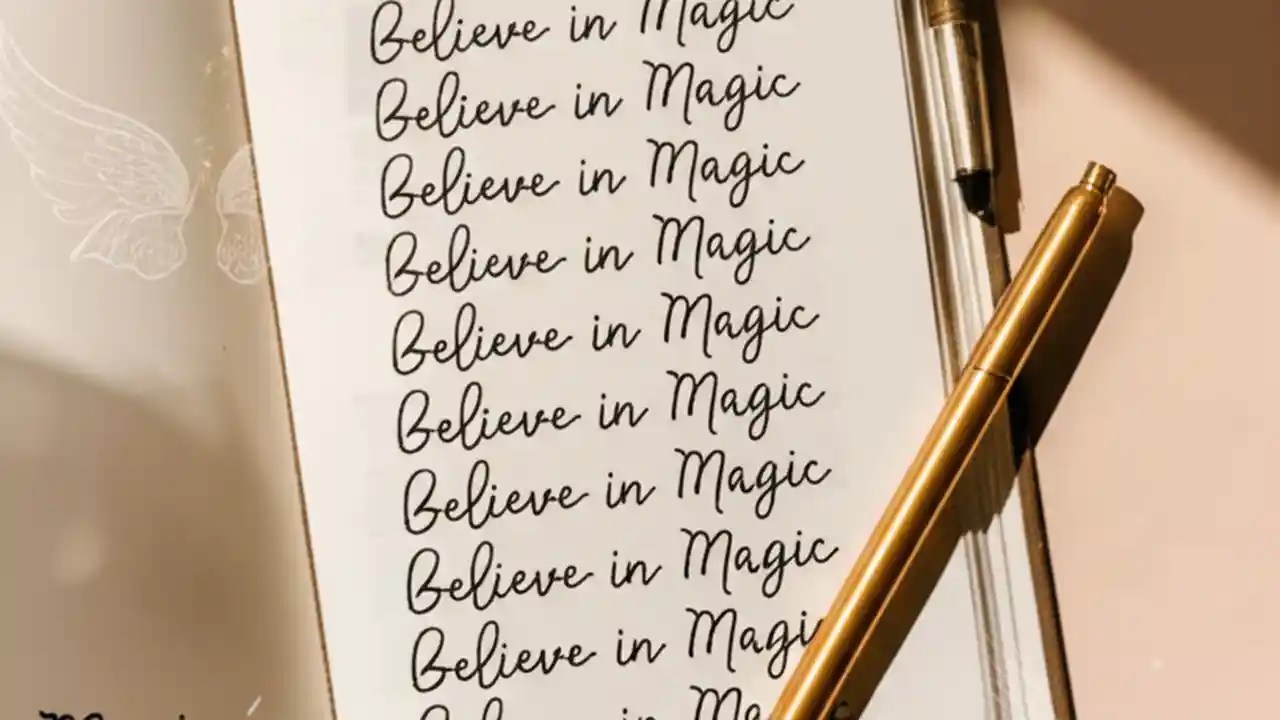 Believe in Magic
Believe in Magic
Believe in Magic
Believe in Magic
Believe in Magic
Believe in Magic
Believe in Magic
Believe in Magic
Believe in Magic
Believe in